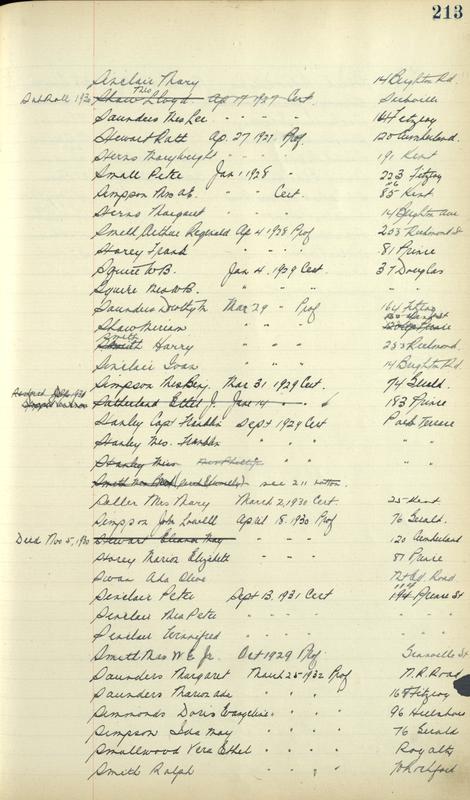 213
Sinclair Mary 14 Brighton Rd.
Shaw Lloyd Ap 17 1927 Cert.
Saunders Mrs Lee " " " " 164 Fitzroy
Stewart Ratt Ap. 27 1927 Prof. 120 Cumberland.
Sterns Mary " " " 191 Kent
Small Peter Jan 1 1928 " 223 Fitzroy
Simpson Mrs A.E. " " Cert. 85 Kent
Sterns Margaret " " " 14 Brighton Ave
Smith, Arthur Reginald Ap 4 1928 Prof 203 Richmond St
Storey Frank " " " 81 Prince
Squire W B. Jan 4. 1929 Cert. 37 Douglas
Squire Mrs W B. " " " "
Saunders Dorothy M Mar 29 " Prof 164 Fitzroy
Shaw Miriam " " "
Smith Harry " " " 253 Richmond.
Sinclair Ivan " " " 14 Brighton Rd.
Simpson Mrs Benj. Mar 31 1929 Cert. 74 Gerald.
Sutherland Ethel J. Jan 14 " " 183 Prince
Stanley Capt Franklin Sept 1929 Cert Park Terrace
Stanley Mrs. Franklin " " " " "
Stanley Miss
see 211 bottom.
Seller Mrs Mary March 2, 1930 Cert. 25 Kent
Simpson John Lowell April 18. 1930 Prof 76 Gerald.
Died Nov 5, 1930 Stewart Eleanor May " " " " 120 Cumberland
Storey Marion Elizabeth " " " 81 Prince
Swan Ada Olive " " " Road
Sinclair Peter Sept 13. 1931 Cert 194 Prince St
Sinclair Mrs Peter " " " "
Sinclair Winnifred " " " "
Smith Mrs W E. Jr. Oct 1929 Prof. St
Saunders Margaret March 25 1932 Prof M.R. Road
Saunders Marion Ada " " " " 164 Fitzroy
Simmonds Doris Evangeline " " " 96 Hillsboro
Simpson Iva May " " " " 76 Gerald
Smallwood Vera Ethel " " " " Royalty
Smith Ralph " " " W Rochford